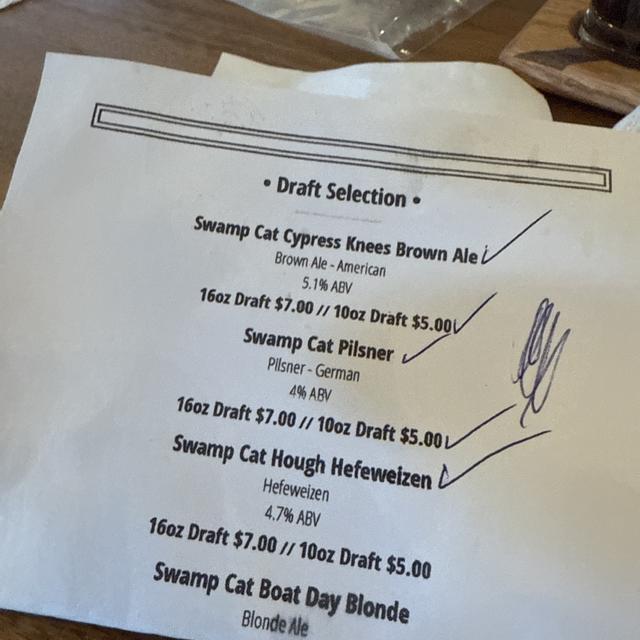 • Draft Selection •
Swamp Cat Cypress Knees Brown Ale
Brown Ale - American
5.1% ABV
16oz Draft $7.00 // 10oz Draft $5.00
Swamp Cat Pilsner
Pilsner - German
4% ABV
16oz Draft $7.00 // 10oz Draft $5.00
Swamp Cat Hough Hefeweizen
Hefeweizen
4.7% ABV
16oz Draft $7.00 // 10oz Draft $5.00
Swamp Cat Boat Day Blonde
Blonde Ale